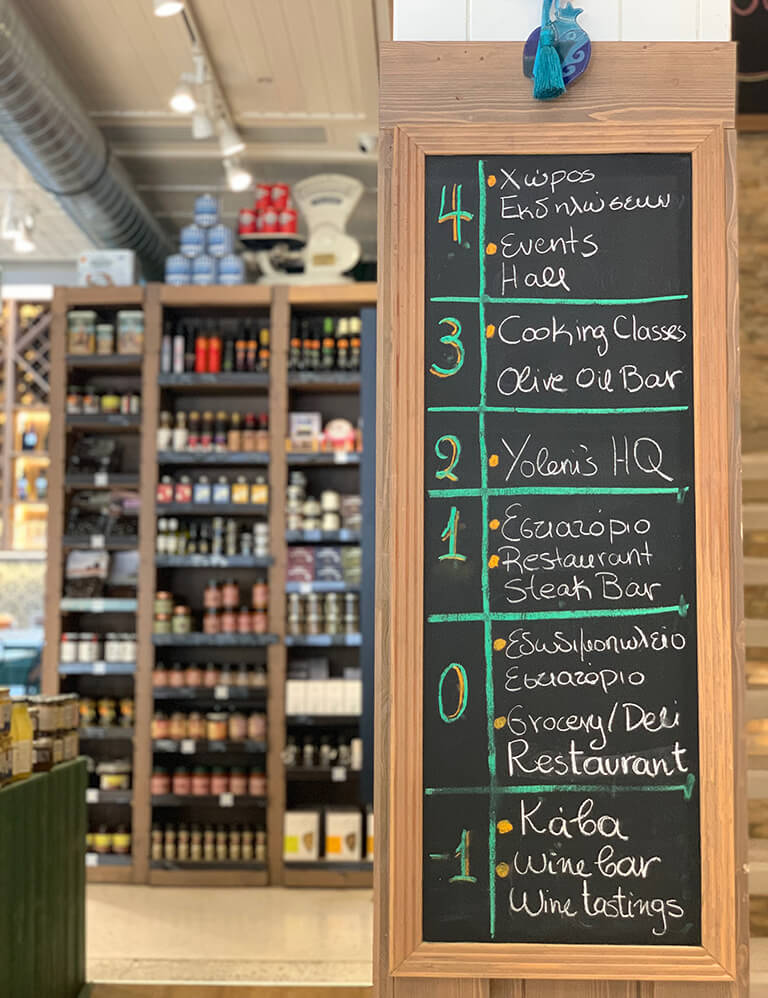 4
Χώρος
Εκδηλώσεων
Events
Hall
3
Cooking Classes
Olive Oil Bar
2
Yoleni's HQ
1
Εστιατόριο
Restaurant
Steak Bar
0
Εδωδιμοπωλείο
Εστιατόριο
Grocery/Deli
Restaurant
-1
Κάβα
Wine bar
Wine tastings